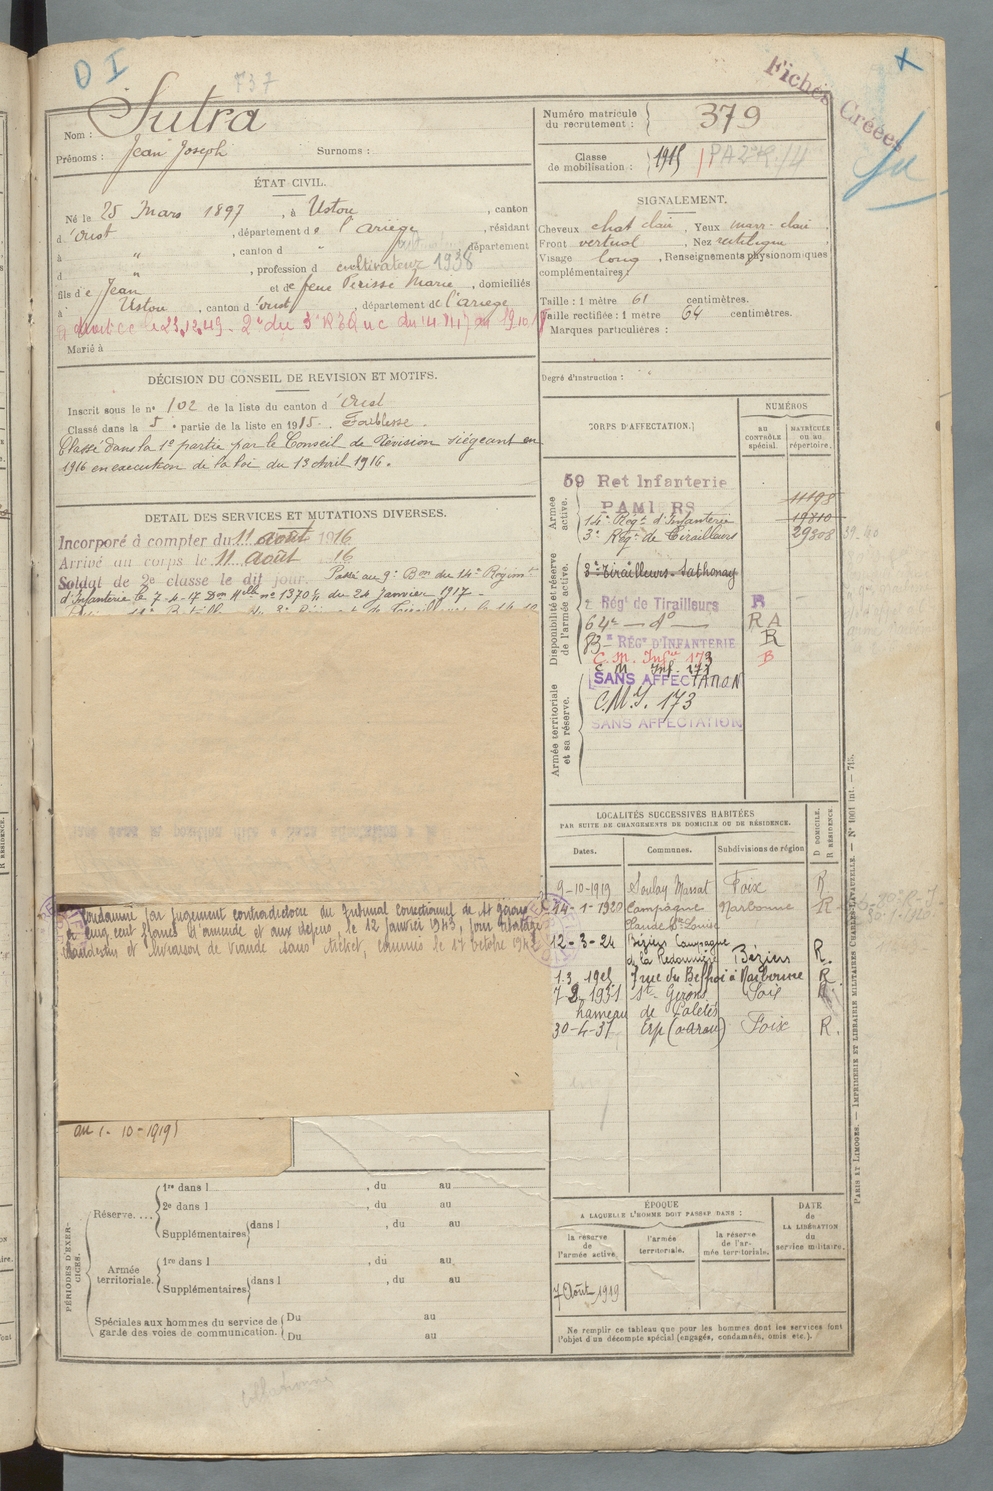 D I
737
Fiches Créées
Nom : Sutra
Prénoms : Jean Joseph Surnoms :
Numéro matricule du recrutement : 379
Classe de mobilisation : 1915
ÉTAT CIVIL.
Né le 25 Mars 1897, à Ustou, canton
d'Oust, département de l'Ariège, résidant
à ", canton d ", département
d ", profession d cultivateur 1938
fils de Jean et de feue Périsse Marie, domiciliés
à Ustou, canton d'Oust, département de l'Ariège
Marié à
SIGNALEMENT.
Cheveux chat clair, Yeux marr-clair,
Front vertical, Nez rectiligne,
Visage long, Renseignements physionomiques
complémentaires :
Taille : 1 mètre 61 centimètres.
Taille rectifiée : 1 mètre 64 centimètres.
Marques particulières :
Degré d'instruction :
DÉCISION DU CONSEIL DE REVISION ET MOTIFS.
Inscrit sous le no 102 de la liste du canton d'Oust
Classé dans la 5e partie de la liste en 1915. Faiblesse
Classé dans la 1e partie par le Conseil de Révision siégeant en
1916 en execution de la loi du 13 Avril 1916.
DETAIL DES SERVICES ET MUTATIONS DIVERSES.
Incorporé à compter du 11 août 1916
Arrivé au corps le 11 août 16
Soldat de 2e classe le dit jour. Passé au 9e Bon du 14e Régimt
d'Infanterie le 7-4-17 Don Mlle no 1370 du 24 Janvier 1917.
Condamné par jugement contradictoire du Tribunal Correctionnel de St Girons
à cinq cent francs d'amende et aux dépens, le 12 Janvier 1943, pour abattage
clandestin et livraison de viande sans ticket, commis le 17 octobre 1942
au 1-10-1919
CORPS D'AFFECTATION.
NUMÉROS
AU CONTRÔLE spécial.
MATRICULE ou au répertoire.
Armée active.
59 Ret Infanterie
PAMIERS 11198
14e Régt d'Infanterie 19810
3e Régt de Tirailleurs 29308
Disponibilité et réserve de l'armée active.
3e Tirailleurs Sathonay
2e Régt de Tirailleurs R
64e — do — R A
83e RÉGt D'INFANTERIE R
C. M. Infie 173 B
C M Inf. 173
SANS AFFECTATION
Armée territoriale et sa réserve.
C.M.I. 173
SANS AFFECTATION
LOCALITÉS SUCCESSIVES HABITÉES
PAR SUITE DE CHANGEMENTS DE DOMICILE OU DE RÉSIDENCE.
Dates. Communes. Subdivisions de région
D DOMICILE. R RÉSIDENCE.
9-10-1919 Soulan Massat Foix R
14-1-1920 Campagne Narbonne R
12-3-24 Béziers Campagne
de la Redonnière Béziers R.
1.3.1925 7 rue du Beffroi à Narbonne R
1931 St Girons Foix R.
hameau de Paletès
30-4-37 Erp (o Arau) Foix R.
PÉRIODES D'EXERCICES.
Réserve.... 1re dans l , du au
2e dans l , du au
Supplémentaires dans l , du au
Armée territoriale. 1re dans l , du au
Supplémentaires dans l , du au
Spéciales aux hommes du service de garde des voies de communication. Du au
Du au
ÉPOQUE
A LAQUELLE L'HOMME DOIT PASSER DANS :
la réserve de l'armée active.
l'armée territoriale.
la réserve de l'armée territoriale.
DATE de LA LIBÉRATION du service militaire.
7 Août 1919
Ne remplir ce tableau que pour les hommes dont les services font
l'objet d'un décompte spécial (engagés, condamnés, omis etc.).
PARIS ET LIMOGES. — IMPRIMERIE ET LIBRAIRIE MILITAIRES CHARLES-LAVAUZELLE. — No 1001 int. — 715.